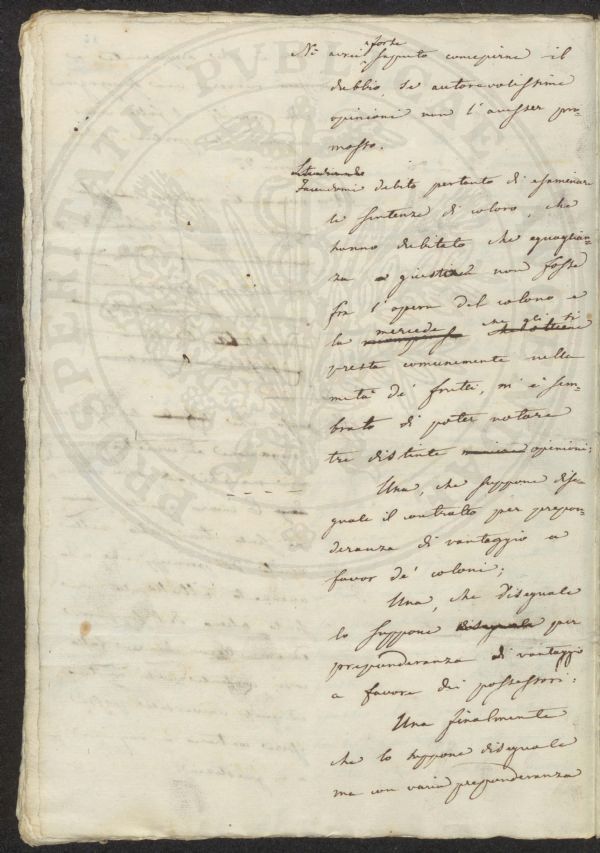 Nè avrei forse saputo concepirne il
dubbio se autorevolissime
opinioni non l'avesser pro=
mosso.
Facendomi debito pertanto di esaminare
le sentenze di coloro, che
hanno dubitato che eguaglian=
za e giustizia non fosse
fra l'opera del colono e
la mercede che gli si
presta comunemente nella
metà de' frutti, m'è sem=
brato di poter notare
tre distinte opinioni;
Una, che suppone dise=
guale il contratto per prepon=
deranza di vantaggio a
favor de' coloni;
Una, che diseguale
lo suppone per
preponderanza di vantaggio
a favore dei possessori:
Una finalmente
che lo suppone diseguale
ma con varia preponderanza
PROSPERITATI PVBLICAE